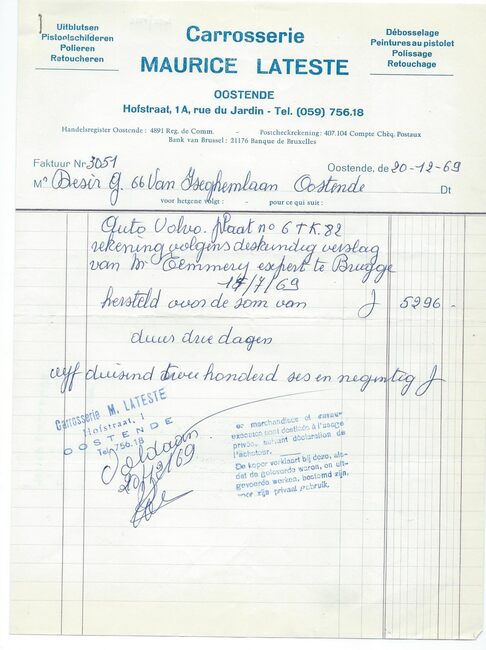 Uitblutsen
Pistoolschilderen
Polieren
Retoucheren
Carrosserie
MAURICE LATESTE
Débosselage
Peintures au pistolet
Polissage
Retouchage
OOSTENDE
Hofstraat, 1A, rue du Jardin - Tel. (059) 756.18
Handelsregister Oostende : 4891 Reg. de Comm. - Postcheckrekening : 407.104 Compte Chèq. Postaux
Bank van Brussel : 21176 Banque de Bruxelles
Faktuur Nr 3051
Oostende, de 20-12-69
Mr Desir G. 66 Van Iseghemlaan Oostende Dt
voor hetgene volgt : - pour ce qui suit :
Auto Volvo. plaat no 6TK.82
rekening volgens deskundig verslag
van Mr Eemmery expert te Brugge
/7/69
hersteld voor de som van f 5296 -
duur drie dagen
vyf duisend twee honderd ses en negentig f
Carrosserie M. LATESTE
Hofstraat, 1
OOSTENDE
Tel. 756.18
Voldaan
20/12/69
es marchandises et travaux
exécutés sont destinés à l'usage
privés, suivant déclaration de
l'acheteur.
De koper verklaart bij deze, als-
dat de geleverde waren, en uit-
gevoerde werken, bestemd zijn,
voor zijn privaat gebruik.